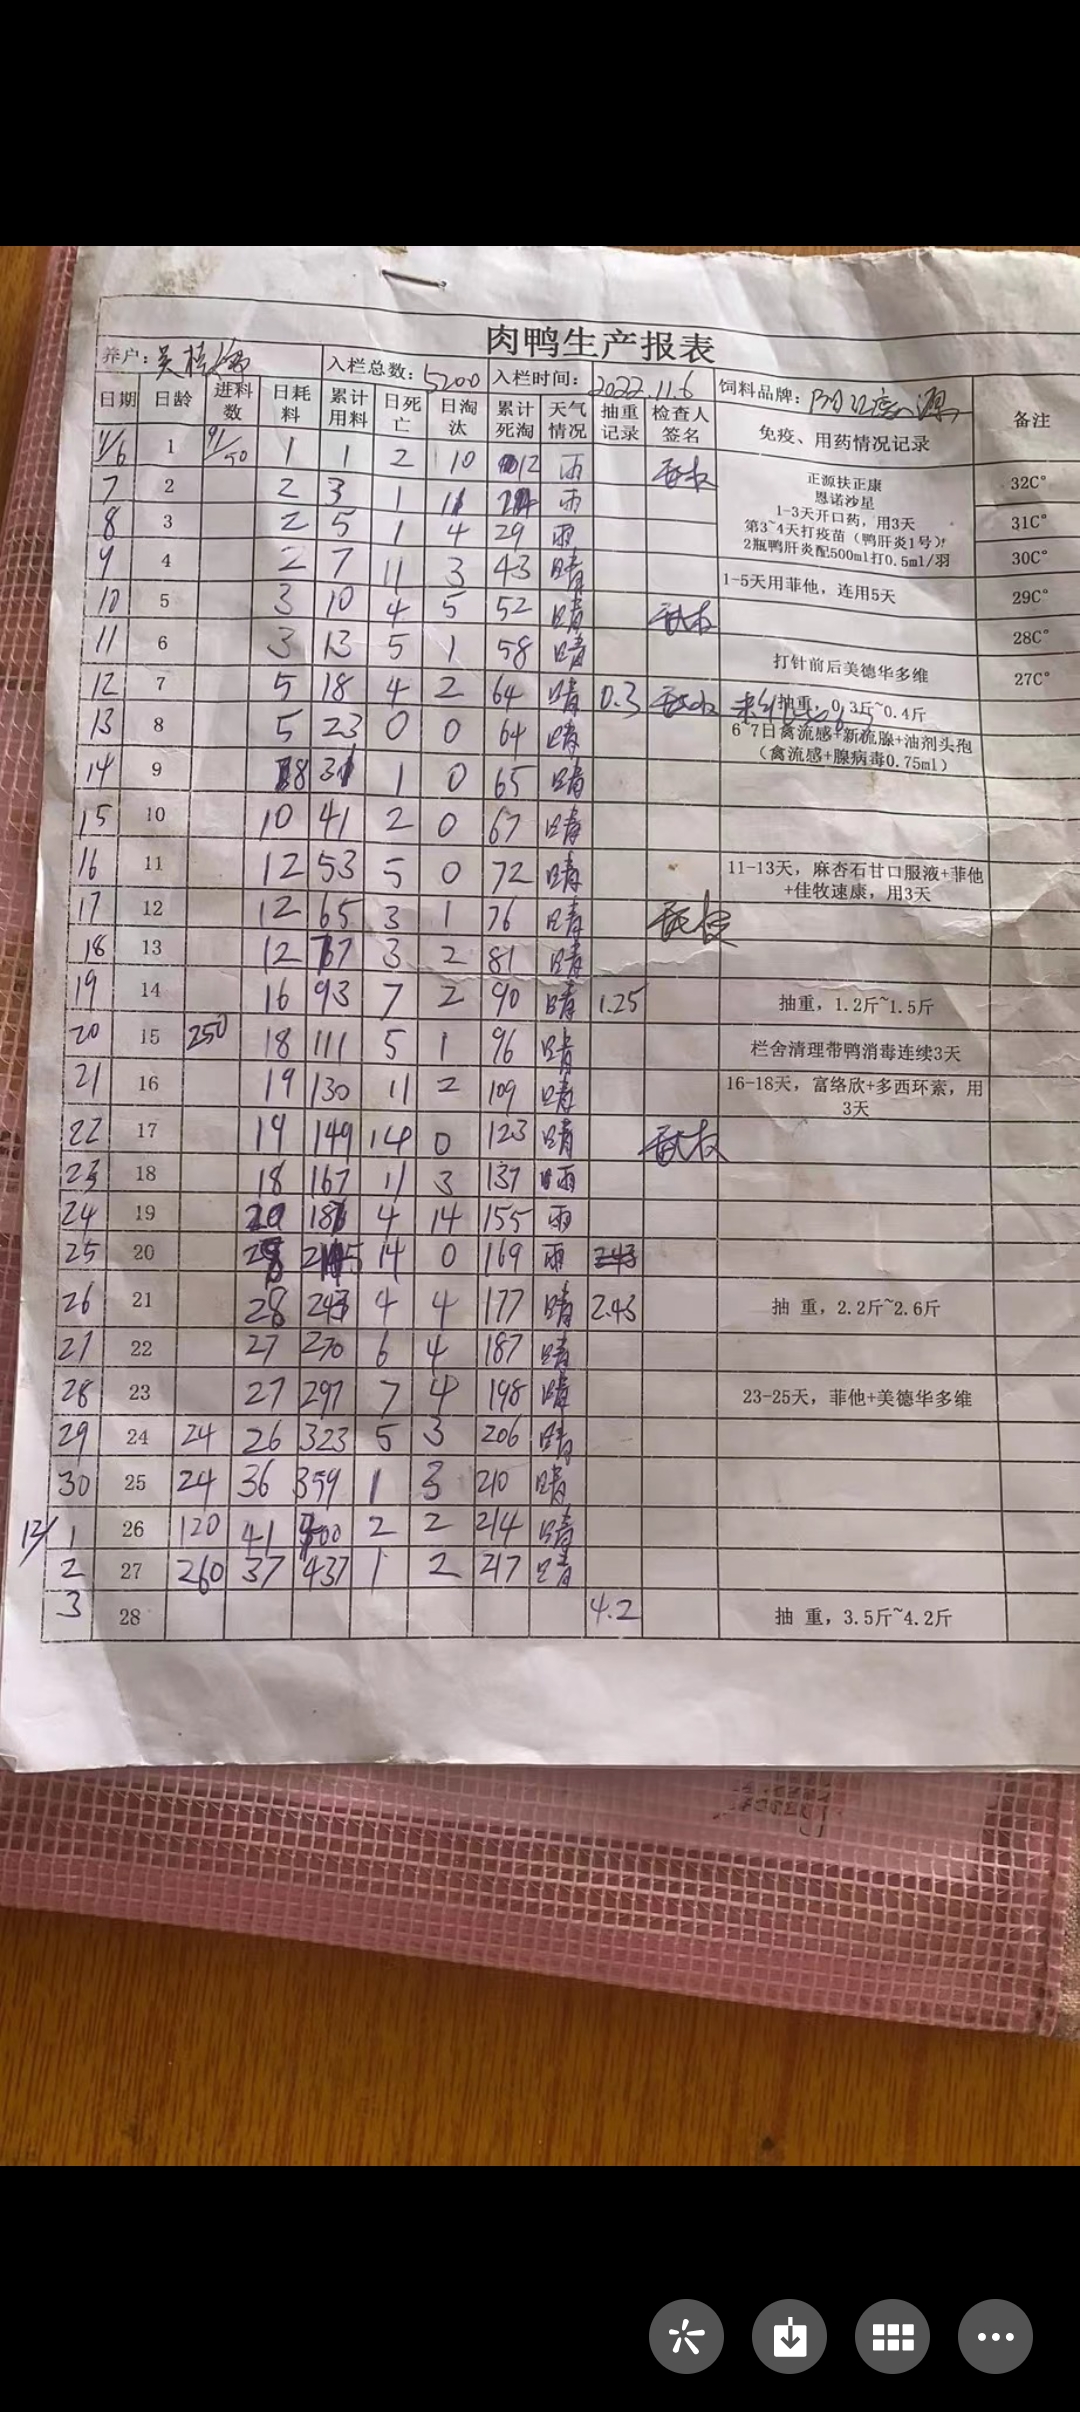 肉鸭生产报表
养户: 吴桂 入栏总数: 5200 入栏时间: 2022.11.6 饲料品牌:
日期 日龄 进料数 日耗料 累计用料 日死亡 日淘汰 累计死淘 天气情况 抽重记录 检查人签名 免疫、用药情况记录 备注
11/6 1 1 1 2 10 12 雨 正源扶正康 32C°
恩诺沙星
7 2 2 3 1 11 24 雨 1-3天开口药，用3天 31C°
第3~4天打疫苗（鸭肝炎1号）!
8 3 2 5 1 4 29 雨 2瓶鸭肝炎配500ml打0.5ml/羽 30C°
9 4 2 7 11 3 43 晴 1-5天用菲他，连用5天 29C°
10 5 3 10 4 5 52 晴 28C°
11 6 3 13 5 1 58 晴 打针前后美德华多维 27C°
12 7 5 18 4 2 64 晴 0.3 抽重，0.3斤~0.4斤
13 8 5 23 0 0 64 晴 6 7日禽流感+新流腺+油剂头孢
（禽流感+腺病毒0.75ml）
14 9 8 31 1 0 65 晴
15 10 10 41 2 0 67 晴
16 11 12 53 5 0 72 晴 11-13天，麻杏石甘口服液+菲他
+佳牧速康，用3天
17 12 12 65 3 1 76 晴
18 13 12 77 3 2 81 晴
19 14 16 93 7 2 90 晴 1.25 抽重，1.2斤~1.5斤
20 15 250 18 111 5 1 96 晴 栏舍清理带鸭消毒连续3天
21 16 19 130 11 2 109 晴 16-18天，富络欣+多西环素，用
3天
22 17 19 149 14 0 123 晴
23 18 18 167 11 3 137 雨
24 19 20 187 4 14 155 雨
25 20 28 215 14 0 169 雨 2.43
26 21 28 243 4 4 177 晴 2.43 抽 重，2.2斤~2.6斤
27 22 27 270 6 4 187 晴
28 23 27 297 7 4 198 晴 23-25天，菲他+美德华多维
29 24 24 26 323 5 3 206 晴
30 25 24 36 359 1 3 210 晴
12/1 26 120 41 400 2 2 214 晴
2 27 260 37 437 1 2 217 晴
3 28 4.2 抽 重，3.5斤~4.2斤